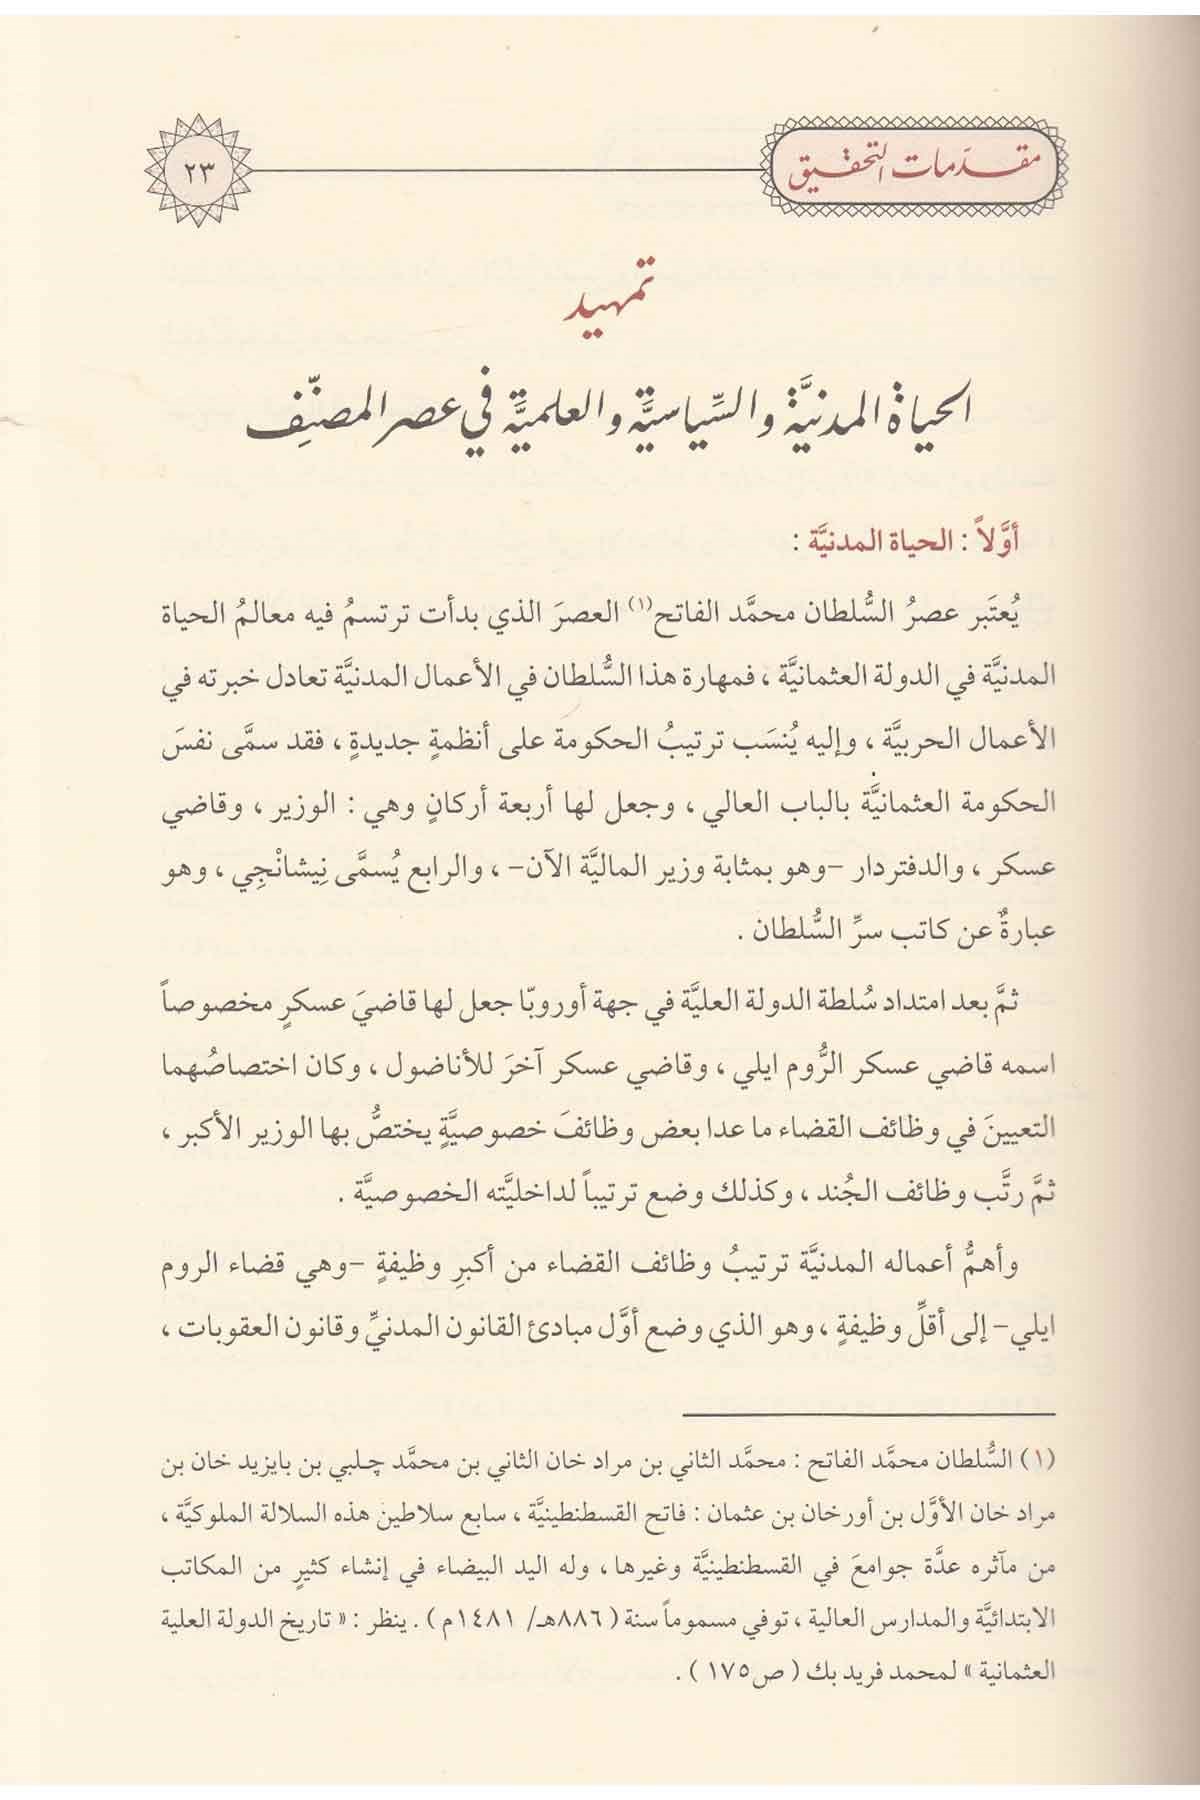 مقدمات التحقيق
٢٣
تمهيد
الحياة المدنيَّة والسِّياسيَّة والعلميَّة في عصر المصنِّف
أوَّلاً : الحياة المدنيَّة :
يُعتَبر عصرُ السُّلطان محمَّد الفاتح(١) العصرَ الذي بدأت ترتسمُ فيه معالمُ الحياة
المدنيَّة في الدولة العثمانيَّة ، فمهارة هذا السُّلطان في الأعمال المدنيَّة تعادل خبرته في
الأعمال الحربيَّة ، وإليه يُنسَب ترتيبُ الحكومة على أنظمةٍ جديدةٍ ، فقد سمَّى نفسَ
الحكومة العثمانيَّة بالباب العالي ، وجعل لها أربعة أركانٍ وهي : الوزير ، وقاضي
عسكر ، والدفتردار -وهو بمثابة وزير الماليَّة الآن- ، والرابع يُسمَّى نِيشانْجِي ، وهو
عبارةٌ عن كاتب سرِّ السُّلطان .
ثمَّ بعد امتداد سُلطة الدولة العليَّة في جهة أوروبّا جعل لها قاضيَ عسكرٍ مخصوصاً
اسمه قاضي عسكر الرُّوم ايلي ، وقاضي عسكر آخرَ للأناضول ، وكان اختصاصُهما
التعيينَ في وظائف القضاء ما عدا بعض وظائفَ خصوصيَّةٍ يختصُّ بها الوزير الأكبر ،
ثمَّ رتَّب وظائف الجُند ، وكذلك وضع ترتيباً لداخليَّته الخصوصيَّة .
وأهمُّ أعماله المدنيَّة ترتيبُ وظائف القضاء من أكبرِ وظيفةٍ -وهي قضاء الروم
ايلي- إلى أقلِّ وظيفةٍ ، وهو الذي وضع أوَّل مبادئ القانون المدنيِّ وقانون العقوبات ،
(١) السُّلطان محمَّد الفاتح : محمَّد الثاني بن مراد خان الثاني بن محمَّد چلبي بن بايزيد خان بن
مراد خان الأوَّل بن أورخان بن عثمان : فاتح القسطنطينيَّة ، سابع سلاطين هذه السلالة الملوكيَّة ،
من مآثره عدَّة جوامعَ في القسطنطينيَّة وغيرها ، وله اليد البيضاء في إنشاء كثيرٍ من المكاتب
الابتدائيَّة والمدارس العالية ، توفي مسموماً سنة ( ٨٨٦هـ/ ١٤٨١م ) . ينظر : « تاريخ الدولة العلية
العثمانية » لمحمد فريد بك ( ص١٧٥ ) .